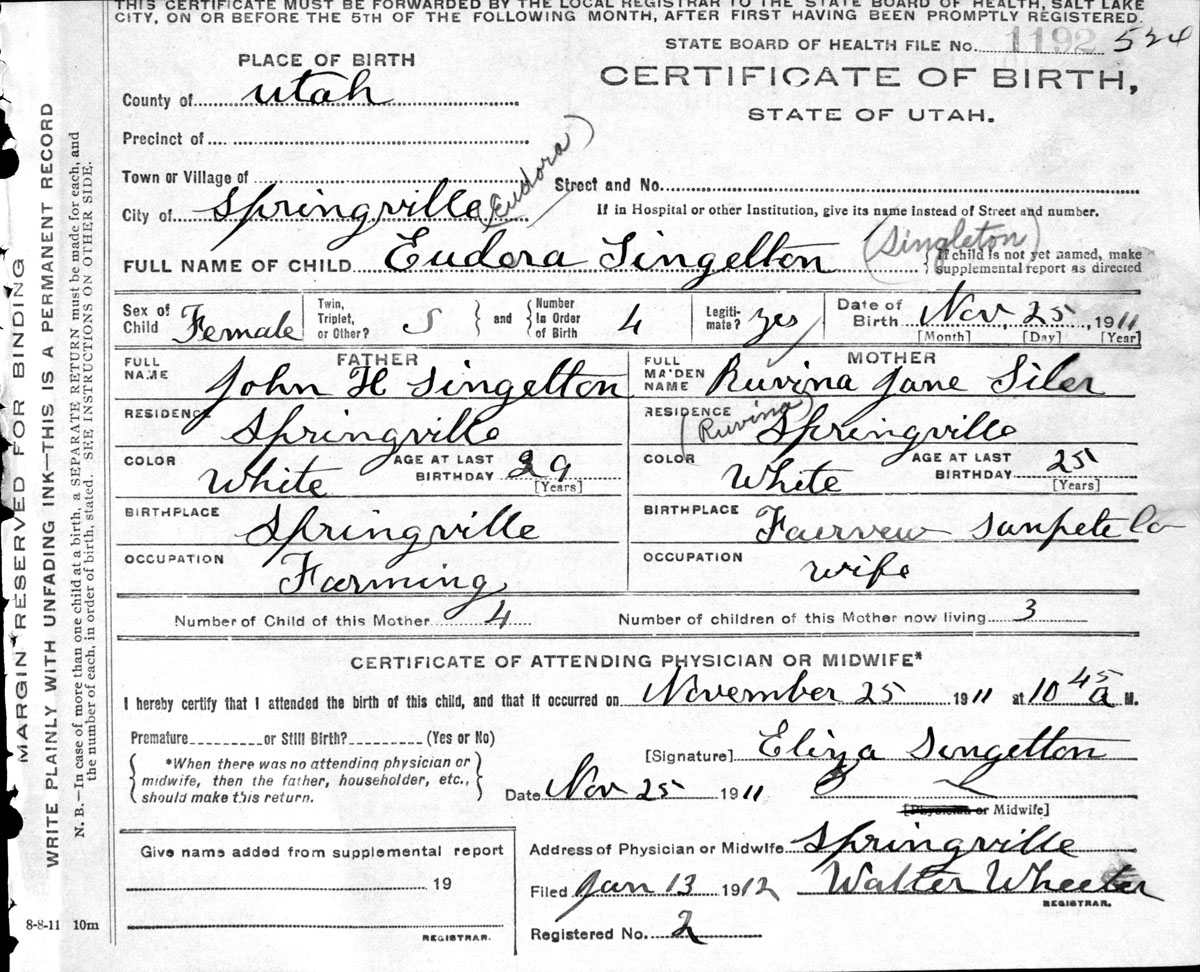 THIS CERTIFICATE MUST BE FORWARDED BY THE LOCAL REGISTRAR TO THE STATE BOARD OF HEALTH, SALT LAKE
CITY, ON OR BEFORE THE 5TH OF THE FOLLOWING MONTH, AFTER FIRST HAVING BEEN PROMPTLY REGISTERED.
STATE BOARD OF HEALTH FILE No. 1192 524
PLACE OF BIRTH
CERTIFICATE OF BIRTH,
STATE OF UTAH.
County of Utah
Precinct of
Town or Village of
Street and No.
City of Springville (Eudora)
If in Hospital or other Institution, give its name instead of Street and number.
FULL NAME OF CHILD Eudora Singelton (Singleton)
{If child is not yet named, make
supplemental report as directed
Sex of Child Female
Twin, Triplet, or Other? S } and { Number In Order of Birth 4
Legiti-mate? Yes
Date of Birth Nov, 25, 1911
[Month] [Day] [Year]
FATHER
FULL NAME John H Singelton
MOTHER
FULL MAIDEN NAME Ruvina Jane Siler
RESIDENCE Springville
RESIDENCE (Ruvina) Springville
COLOR White AGE AT LAST BIRTHDAY 29 [Years]
COLOR White AGE AT LAST BIRTHDAY 25 [Years]
BIRTHPLACE Springville
BIRTHPLACE Fairvew Sanpete Co
OCCUPATION Farming
OCCUPATION wife
Number of Child of this Mother 4 Number of children of this Mother now living 3
CERTIFICATE OF ATTENDING PHYSICIAN OR MIDWIFE*
I hereby certify that I attended the birth of this child, and that it occurred on November 25 1911 at 10 45 a M.
Premature or Still Birth? (Yes or No)
{ *When there was no attending physician or
midwife, then the father, householder, etc.,
should make this return. }
[Signature] Eliza Singelton
Date Nov 25 1911
[Physician or Midwife]
Give name added from supplemental report
19
REGISTRAR.
Address of Physician or Midwife Springville
Filed Jan 13 1912 Walter Wheeler
REGISTRAR.
Registered No. 2
8-8-11 10m
MARGIN RESERVED FOR BINDING
WRITE PLAINLY WITH UNFADING INK—THIS IS A PERMANENT RECORD
N. B.—In case of more than one child at a birth, a SEPARATE RETURN must be made for each, and
the number of each, in order of birth, stated. SEE INSTRUCTIONS ON OTHER SIDE.